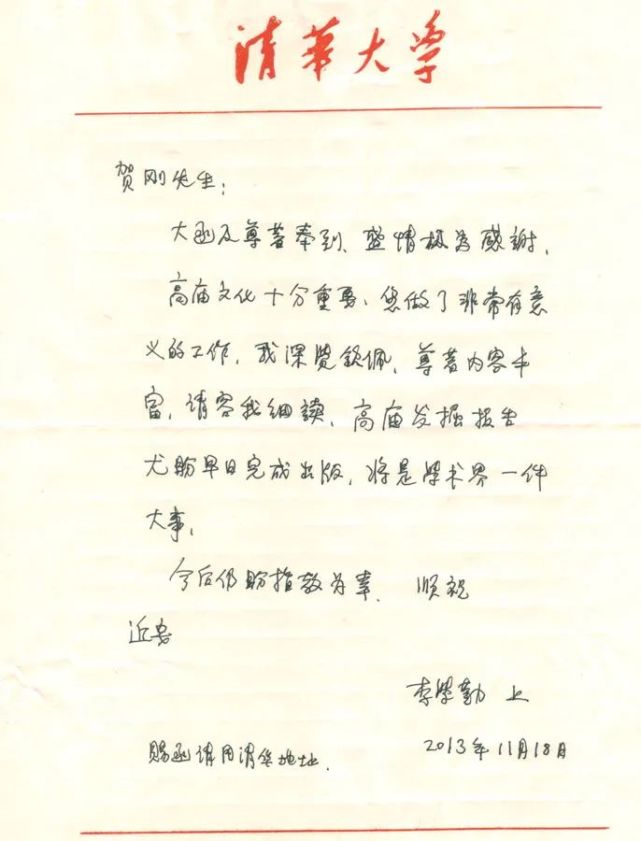 清华大学
贺刚先生：
大函及尊著奉到，盛情极为感谢。
高庙文化十分重要，您做了非常有意
义的工作，我深觉钦佩。尊著内容丰
富，请容我细读。高庙发掘报告
尤盼早日完成出版，将是学术界一件
大事。
今后仍盼指教为幸。 顺祝
近安
李学勤 上
2013年11月18日
赐函请用清华地址。